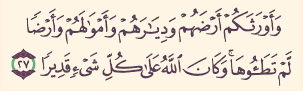 وَأَوْرَثَكُمْ أَرْضَهُمْ وَدِيَٰرَهُمْ وَأَمْوَٰلَهُمْ وَأَرْضًا
لَّمْ تَطَـُٔوهَا ۚ وَكَانَ ٱللَّهُ عَلَىٰ كُلِّ شَىْءٍ قَدِيرًا ٢٧